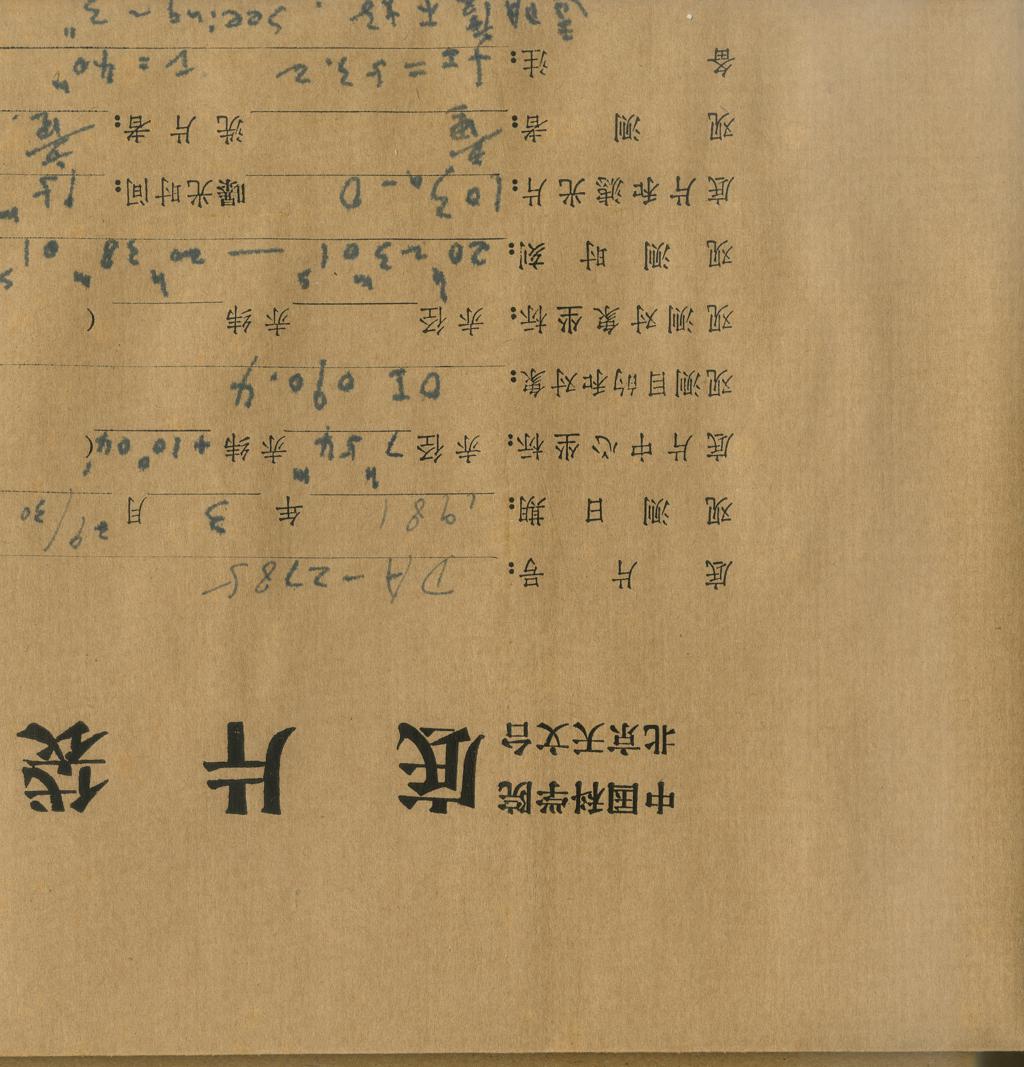 中国科学院
北京天文台 底片袋
底片号: DA-2785
观测日期: 1981年3月29/30
底片中心坐标: 赤径 7h54m 赤纬 +10°04′(
观测目的和对象: OI 090.4
观测对象坐标: 赤径 赤纬 (
观测时刻: 20h23m01s — 20h38m01s
底片和滤光片: 103a-D 曝光时间: 15m
观测者: 洗片者:
备注: fI=53.2 T=40m
透明度不好, seeing~3"